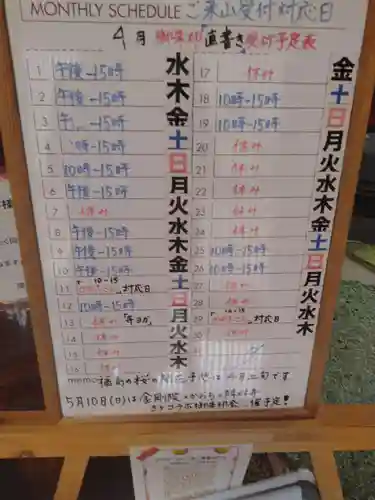 MONTHLY SCHEDULE ご来山受付対応日
4月 「直書き」受付予定表
1 午後〜15時 水
2 午後〜15時 木
3 〜15時 金
4 時〜15時 土
5 10時〜15時 日
6 午後〜15時 月
7 休み 火
8 午後〜15時 水
9 午後〜15時 木
10 午後〜15時 金
11 10-15 対応日 土
12 10時〜15時 日
13 休み 月
14 休み 火
15 休み 水
16 休み 木
17 休み 金
18 10時〜15時 土
19 10時〜15時 日
20 休み 月
21 休み 火
22 休み 水
23 休み 木
24 休み 金
25 10時〜15時 土
26 10時〜15時 日
27 休み 月
28 休み 火
29 10-15 対応日 水
30 休み 木
memo 桜の は4月上旬です
5月10日(日)は金剛院